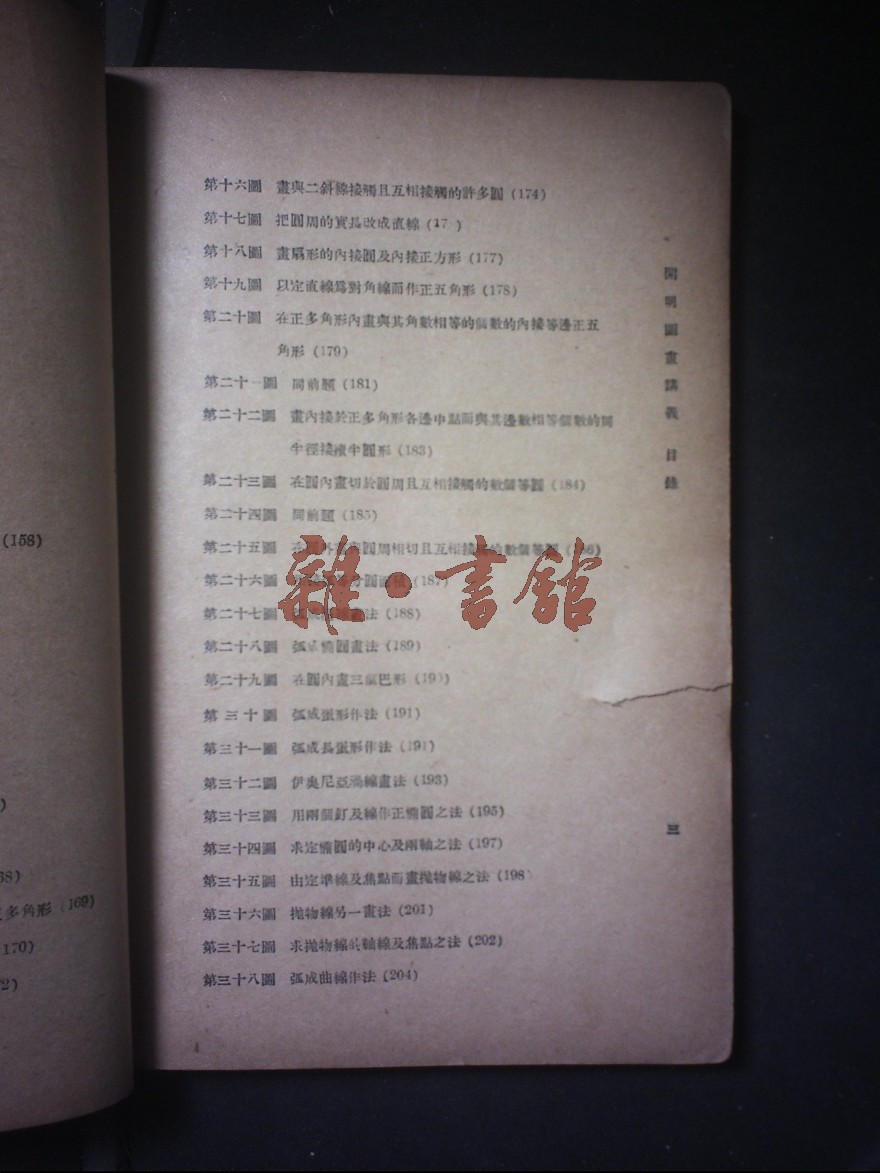 第十六圖 畫與二斜線接觸且互相接觸的許多圓 (174)
第十七圖 把圓周的實長改成直線 (17 )
第十八圖 畫扇形的內接圓及內接正方形 (177)
第十九圖 以定直線爲對角線而作正五角形 (178)
第二十圖 在正多角形內畫與其角數相等的個數的內接等邊正五
角形 (179)
第二十一圖 同前題 (181)
第二十二圖 畫內接於正多角形各邊中點而與其邊數相等個數的同
半徑接續半圓形 (183)
第二十三圖 在圓內畫切於圓周且互相接觸的數個等圓 (184)
第二十四圖 同前題 (185)
第二十五圖 在圓外畫與圓周相切且互相接觸的數個等圓 (186)
第二十六圖 分圓面積 (187)
第二十七圖 弧成 畫法 (188)
第二十八圖 弧成橢圓畫法 (189)
第二十九圖 在圓內畫三個巴形 (190)
第三十圖 弧成蛋形作法 (191)
第三十一圖 弧成長蛋形作法 (191)
第三十二圖 伊奧尼亞渦線畫法 (193)
第三十三圖 用兩個釘及線作正橢圓之法 (195)
第三十四圖 求定橢圓的中心及兩軸之法 (197)
第三十五圖 由定準線及焦點而畫拋物線之法 (198)
第三十六圖 拋物線另一畫法 (201)
第三十七圖 求拋物線的軸線及焦點之法 (202)
第三十八圖 弧成曲線作法 (204)
開明圖畫講義 目錄
三
雜·書館
(158)
)
68)
正多角形 (169)
170)
72)